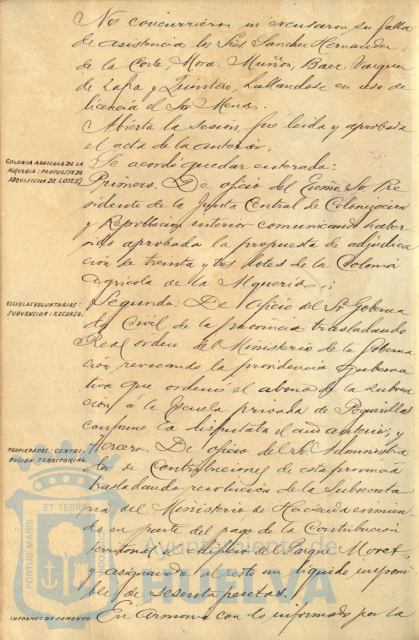 No concurrieron ni excusaron su falta
de asistencia los Sres Sanchez Hernandez,
de la Corte, Mora, Muñoz, Baez, Vazquez
de Zafra y Quintero, hallandose en uso de
licencia el Sr Mena.
Abierta la sesión, fue leida y aprobada
el acta de la anterior.
COLONIA AGRICOLA DE LA
ALQUERIA: PROPUESTA DE
ADQUISICION DE LOTES
Se acordó quedar enterada:
Primero. De oficio del Excmo Sr Pre
sidente de la Junta Central de Colonizacion
y Repoblacion interior comunicando haber
sido aprobada la propuesta de adjudica
cion de treinta y tres lotes de la Colonia
agricola de la Alqueria.;
ESCUELAS VOLUNTARIAS:
SUBVENCION: RECURSO.
Segundo: De oficio del Sr Goberna
dor Civil de la provincia trasladando
Real orden del Ministerio de la Goberna
ción revocando la providencia guberna
tiva que ordenó el abono de la subven
ción á la Escuela privada de
conforme la disfrutaba el año anterior; y
PROPIEDADES: CONTRI-
BUCION TERRITORIAL
Tercero. De oficio del Sr Administra
dor de Contribuciones de esta provincia
trasladando resolución de la Subsecreta
ria del Ministerio de Hacienda
en parte del pago de la Contribución
territorial el edificio del Parque Moret
y asignando al resto un liquido imponi
ble de sesenta pesetas.
INFORMES DE FOMENTO
En armonia con lo informado por la
PORTUS MARIS ET TERRAE
Ayuntamiento de
HUELVA